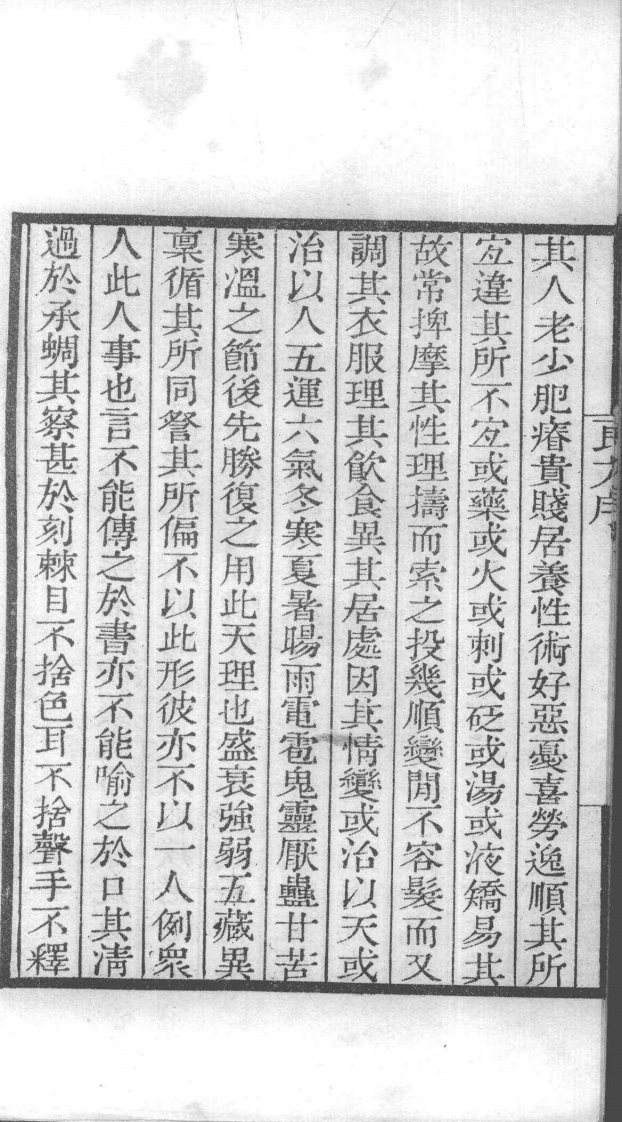 其人老少肥瘠貴賤居養性術好惡憂喜勞逸順其所
宐違其所不宐或藥或火或刺或砭或湯或液矯易其
故常捭摩其性理擣而索之投幾順變閒不容髮而又
調其衣服理其飲食異其居處因其情變或治以天或
治以人五運六氣冬寒夏暑暘雨電雹鬼靈厭蠱甘苦
寒溫之節後先勝復之用此天理也盛衰強弱五藏異
稟循其所同詧其所偏不以此形彼亦不以一人例衆
人此人事也言不能傳之於書亦不能喻之於口其淸
過於承蜩其察甚於刻棘目不捨色耳不捨聲手不釋